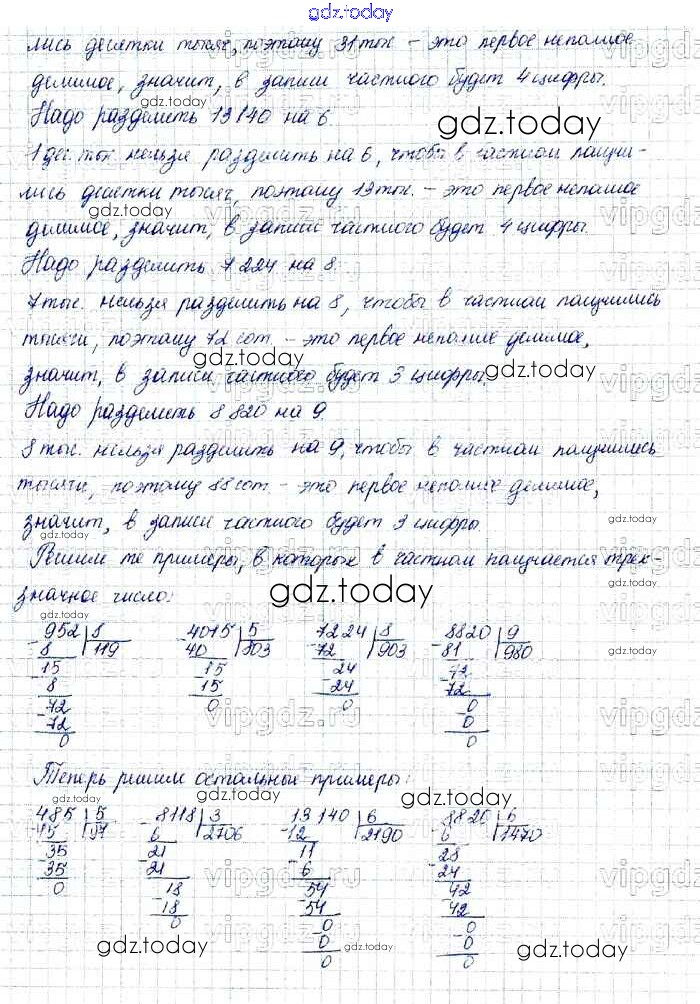 gdz.today
лись десятки тысяч, поэтому 31 тыс. – это первое неполное
делимое, значит, в записи частного будет 4 цифры.
gdz.today
Надо разделить 13140 на 6.
gdz.today
1 дес. тыс. нельзя разделить на 6, чтобы в частном получи-
лись десятки тысяч, поэтому 13 тыс. – это первое неполное
gdz.today vipgdz.ru vipgdz
делимое, значит, в записи частного будет 4 цифры.
Надо разделить 7 224 на 8.
vipgdz.ru vipgdz
7 тыс. нельзя разделить на 8, чтобы в частном получились
тысячи, поэтому 72 сот. – это первое неполное делимое,
gdz.today
значит, в записи частного будет 3 цифры.
gdz.today vipgdz.ru vipgdz
Надо разделить 8 820 на 9.
8 тыс. нельзя разделить на 9, чтобы в частном получились
тысячи, поэтому 88 сот. – это первое неполное делимое,
gdz.today
значит, в записи частного будет 3 цифры.
gdz.today
Решим те примеры, в которых в частном получается трёх-
gdz.today
значное число:
gdz.today vipgdz.ru vipgdz
952 8 4015 5 7224 8 8820 9
8 119 40 803 72 903 81 980
gdz.today gdz.today gdz.today gdz.today
15 15 24 72
8 15 24 72
72 0 0 0
72 0
0 0
vipgdz.ru vipgdz.ru
Теперь решим остальные примеры:
gdz.today gdz.today gdz.today
485 5 8118 3 13140 6 8820 6
45 97 6 2706 12 2190 6 1470
35 21 11 28
35 21 6 24
0 18 54 42
18 54 42
0 0 0
0 0
0 0
vipgdz.ru vipgdz.ru vipgdz
gdz.today gdz.today gdz.today gdz.today